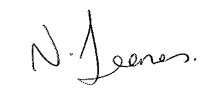 N. Jeenes.